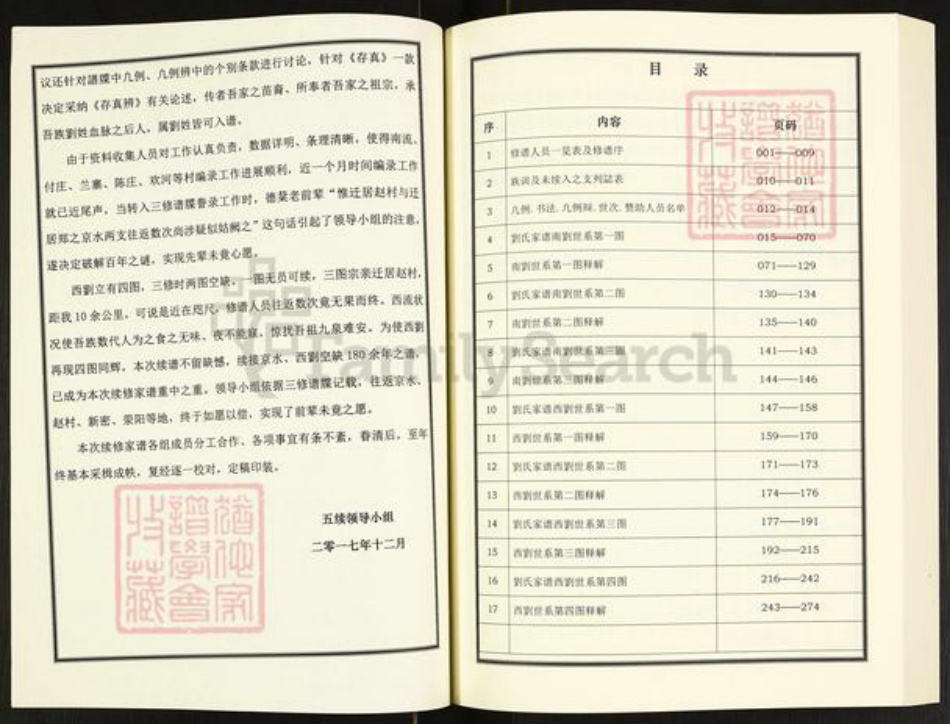 议还针对譜牒中几例、几例辨中的个别条款进行讨论，针对《存真》一款
决定采纳《存真辨》有关论述，传者吾家之苗裔、所奉者吾家之祖宗，承
吾族劉姓血脉之后人，属劉姓皆可入谱。
由于资料收集人员对工作认真负责，数据详明、条理清晰，使得南流、
付庄、兰寨、陈庄、欢河等村编录工作进展顺利，近一个月时间编录工作
就已近尾声，当转入三修谱牒誊录工作时，德棻老前辈“惟迁居赵村与迁
居郑之京水两支往返数次尚涉疑似姑阙之”这句话引起了领导小组的注意，
遂决定破解百年之谜，实现先辈未竟心愿。
西劉立有四图，三修时两图空缺。一图无员可续，三图宗亲迁居赵村，
距我10余公里，可说是近在咫尺，修谱人员往返数次竟无果而终。西流状
况使吾族数代人为之食之无味、夜不能寐，惊扰吾祖九泉难安。为使西劉
再现四图同辉，本次续谱不留缺憾，续接京水、西劉空缺180余年之谱，
已成为本次续修家谱重中之重，领导小组依据三修谱牒记载，往返京水、
赵村、新密、荥阳等地，终于如愿以偿，实现了前辈未竟之愿。
本次续修家谱各组成员分工合作、各项事宜有条不紊，眷清后，至年
终基本采楫成帙，复经逐一校对，定稿印装。
五续领导小组
二零一七年十二月
FamilySearch
目 录
序 内容 页码
1 修谱人员一览表及修谱序 001——009
2 族训及未续入之支列誌表 010——011
3 几例.书法.几例辩.世次.赞助人员名单 012——014
4 劉氏家谱南劉世系第一图 015——070
5 南劉世系第一图释解 071——129
6 劉氏家谱南劉世系第二图 130——134
7 南劉世系第二图释解 135——140
8 劉氏家谱南劉世系第三图 141——143
9 南劉世系第三图释解 144——146
10 劉氏家谱西劉世系第一图 147——158
11 西劉世系第一图释解 159——170
12 劉氏家谱西劉世系第二图 171——173
13 西劉世系第二图释解 174——176
14 劉氏家谱西劉世系第三图 177——191
15 西劉世系第三图释解 192——215
16 劉氏家谱西劉世系第四图 216——242
17 西劉世系第四图释解 243——274